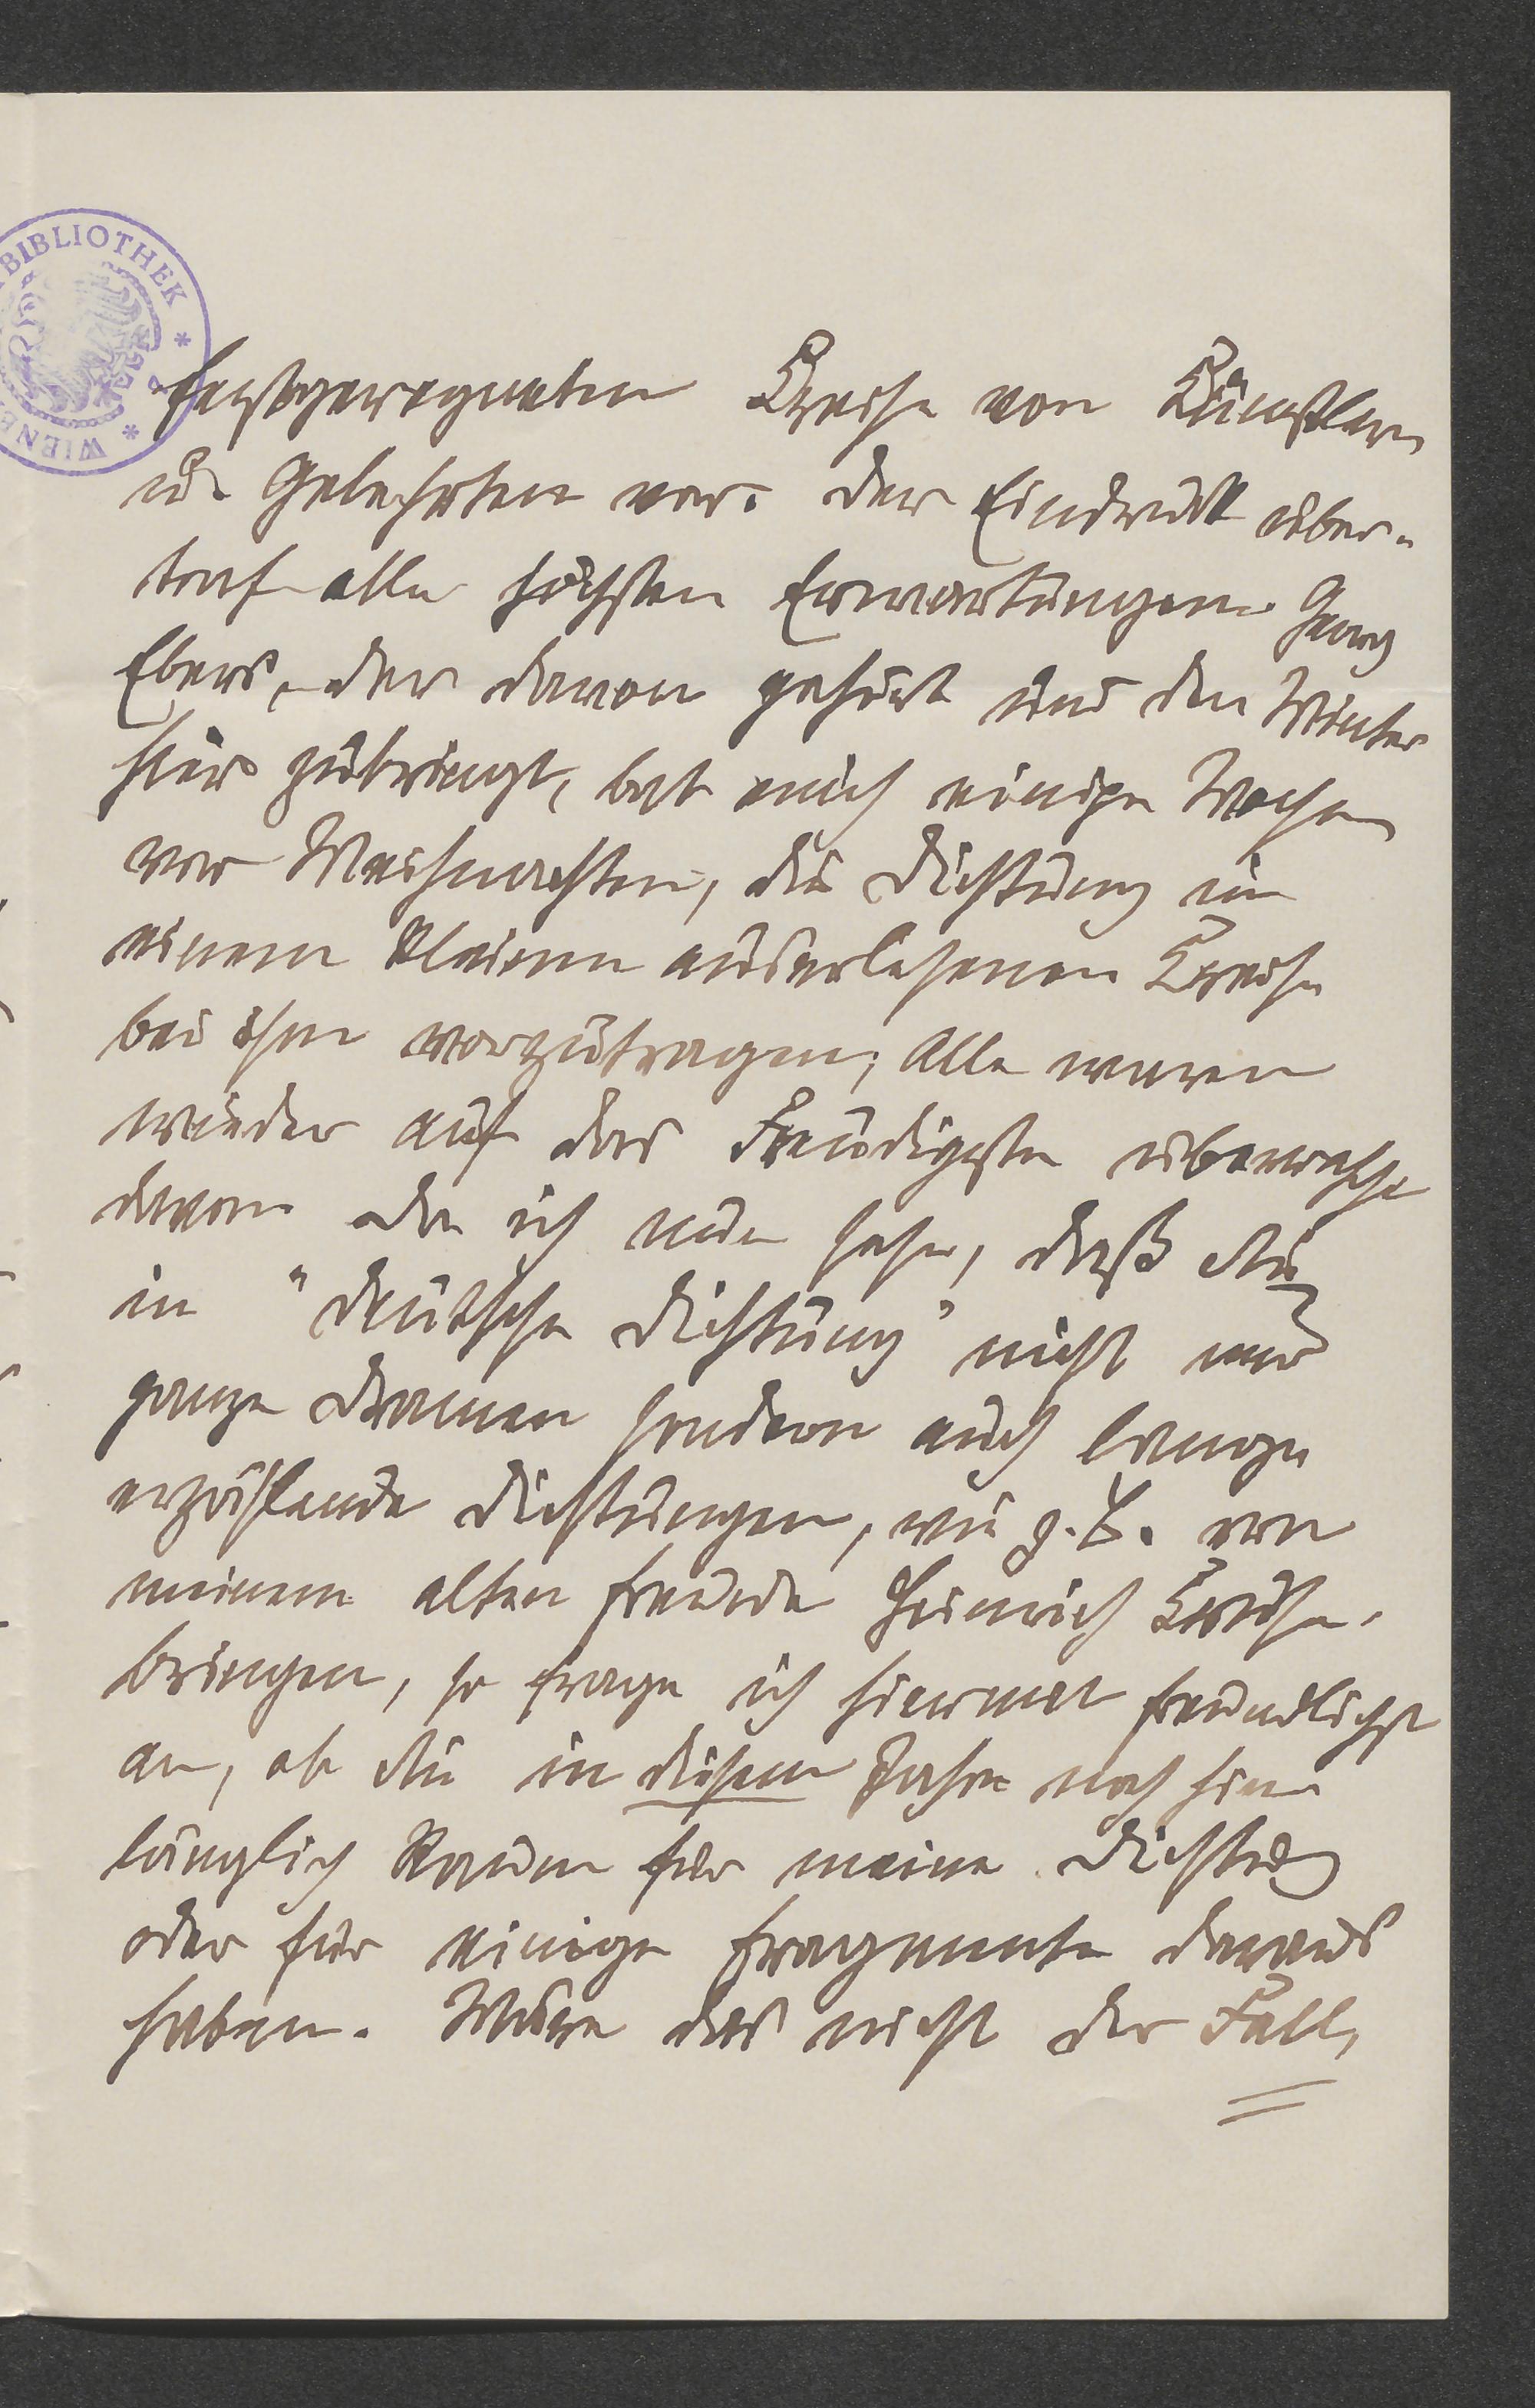 BIBLIOTHEK * WIENER *
festgeregneten Kreise von Künstlern
u. Gelehrten vor. Der Eindruck über-
traf alle höchsten Erwartungen. Georg
Ebers, der davon gehört und den Winter
hier zubringt, bat mich einige Wochen
vor Weihnachten, die Dichtung in
einem kleinen auserlesenen Kreise
bei ihm vorzutragen; Alle waren
wieder auf das Freudigste überrascht
davon. Da ich nun sehe, daß Sie
in "Deutsche Dichtung" nicht nur
ganze Dramen sondern auch lange
erzählende Dichtungen, wie z. B. von
meinem alten Freunde Heinrich Kruse,
bringen, so frage ich hiermit freundlichst
an, ob Sie in diesem Jahre noch hin-
länglich Raum für meine Dichtung
oder für einige Fragmente daraus
haben. Wäre das nicht der Fall,